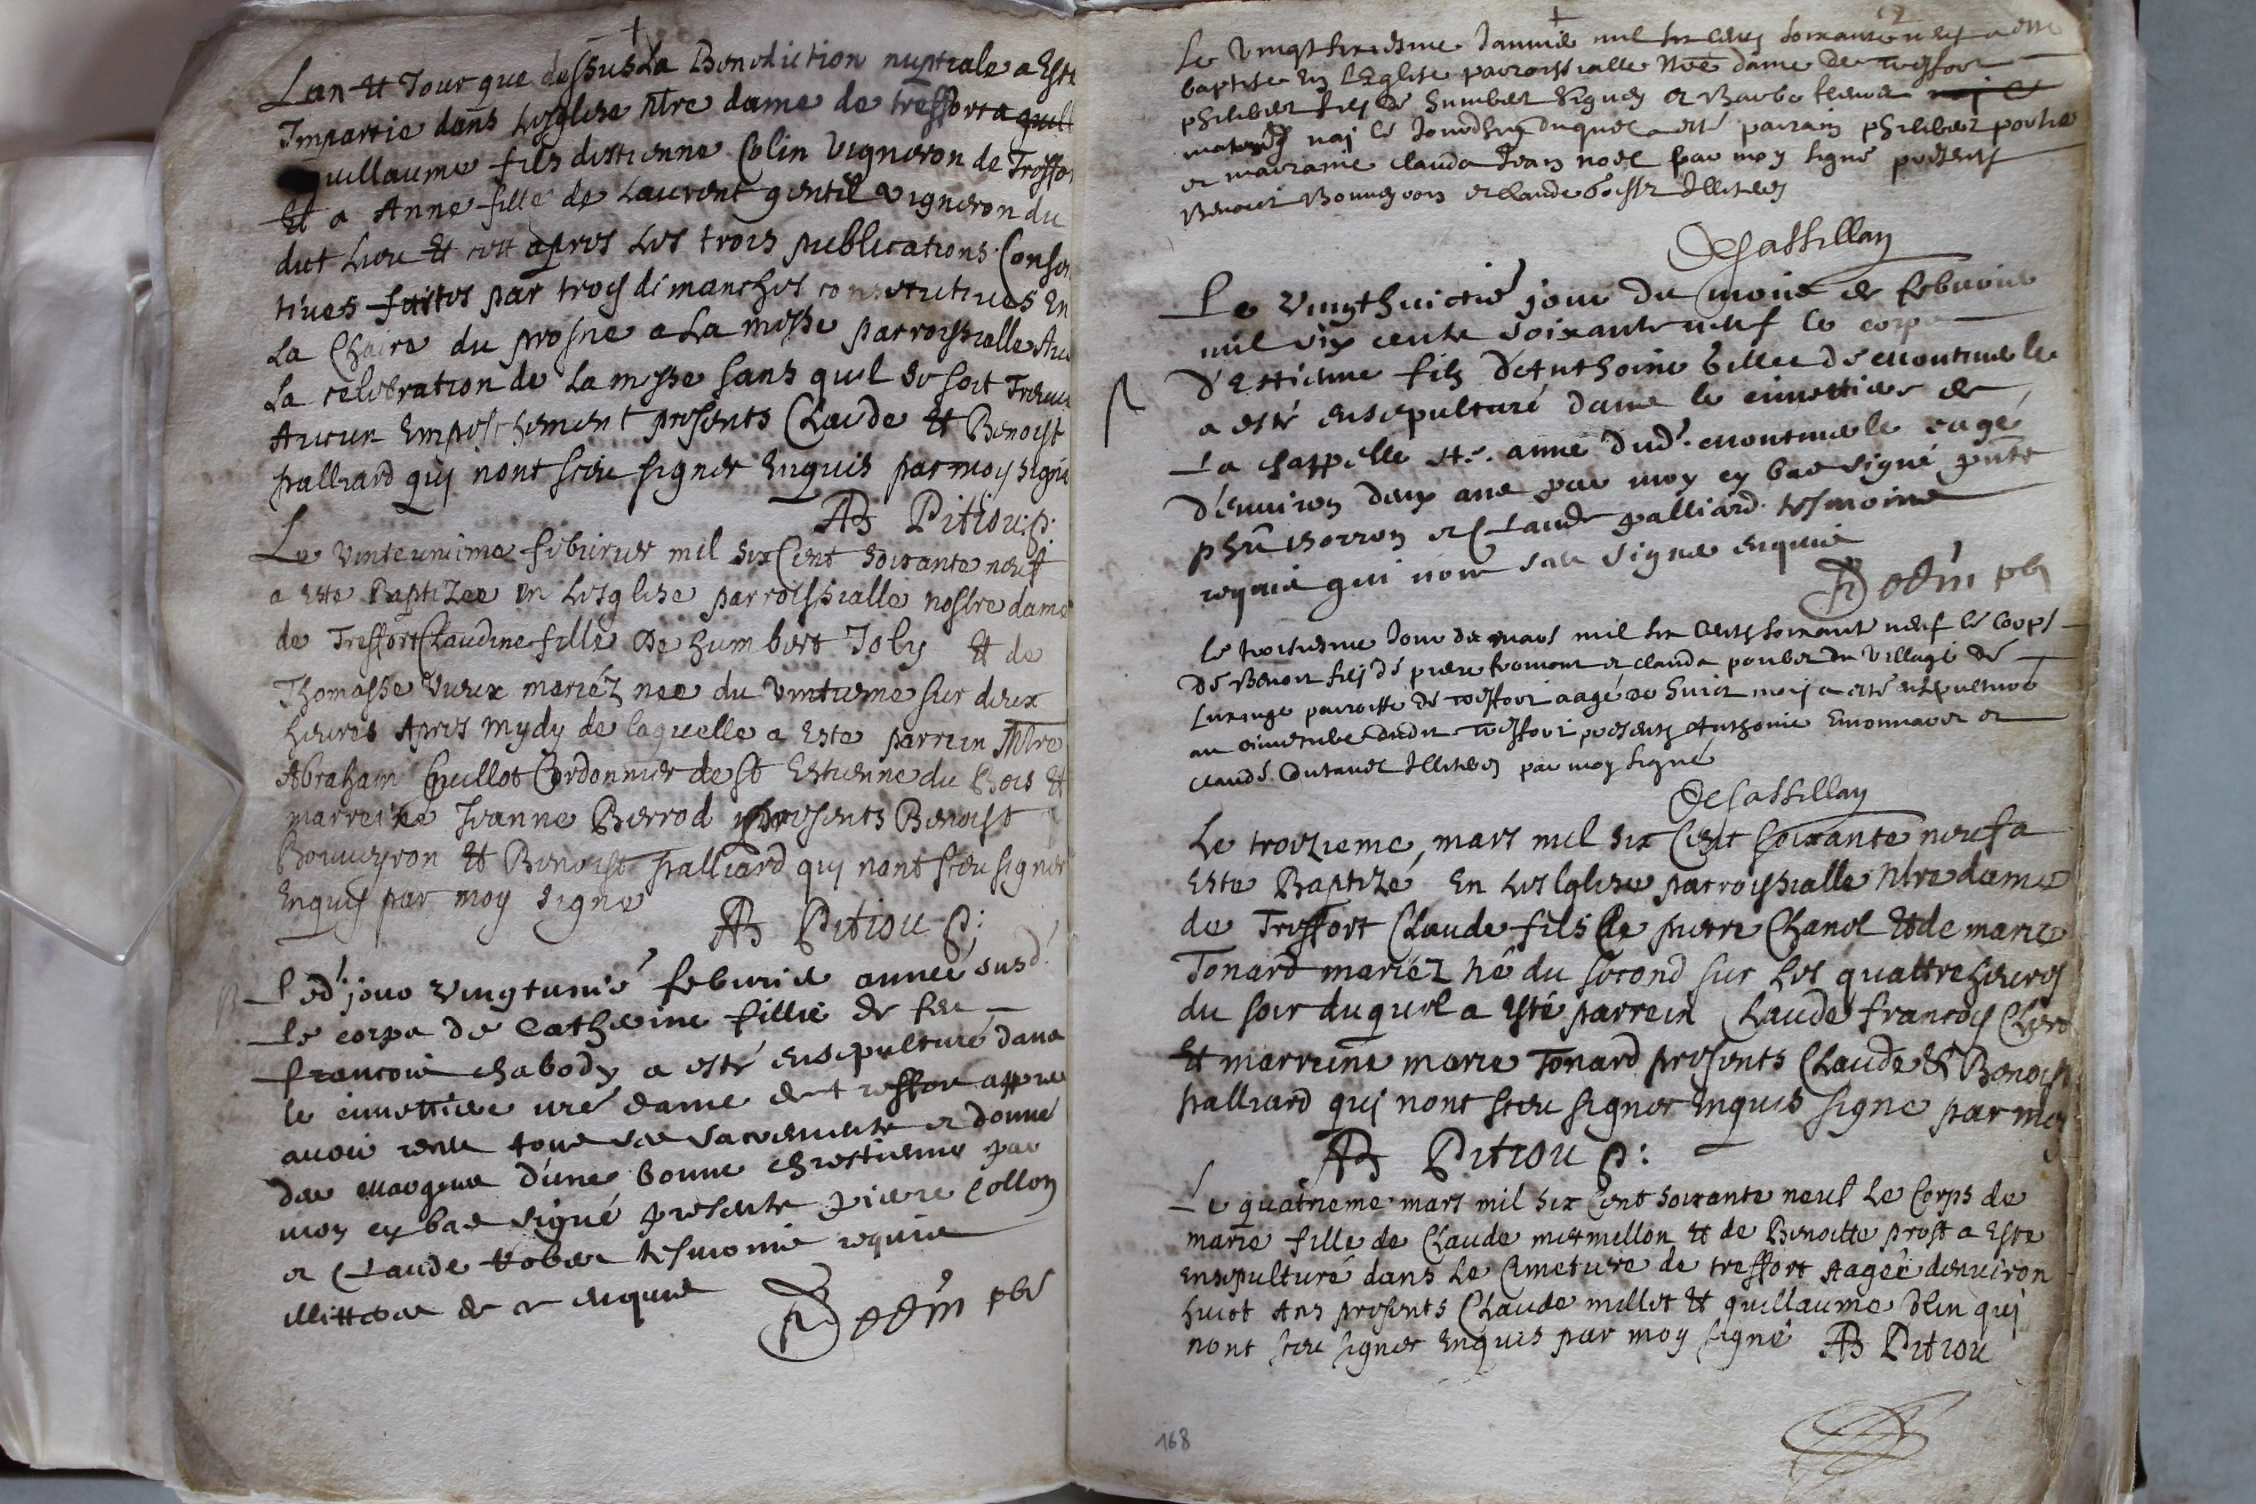 Lan Et Jour que dessus La Benediction nuptiale a Este
Impartie dans Lesglise nre dame de treffort a
guillaume fils destienne Colin Vigneron de Treffort
Et a Anne fille de Laurent gentil vigneron du
dict Lieu Et ce apres Les trois publications Conse
tives faites par trois dimanches consecutives En
La Chaire du prosne a La messe parroissialle
La celebration de La messe sans quil se soit Treuve
Aucun Empeschement presents Claude Et Benoist
palliard quj nont sceu signer Enquis par moy signe
AB Pitiou p:
Le vinteunime feburier mil six Cent soixante neuf
a Este Baptizee en Lesglise parroissialle nostre dame
de Treffort Claudine fille de humbert Joly Et de
Thomasse Vieux mariéz nee du vintieme sur deux
heures Apres mydy de laquelle a Este parrein
Abraham Guillot Cordonnier de st Estienne du Bois Et
marreine Jeanne Berrod presents Benoist
Bouveyron Et Benoist palliard quj nont sceu signer
Enquis par moy signe
AB Pitiou p:
Led' jour vingtunié feburie année susd'
Le corps de Catherine fillie de feu
francois chabody a esté ensepulturé dans
le cimettiere nre dame de treffort appres
avoir receu tous ses sacrements et donné
des marques d'une bonne chrestienne par
moy cy bas signé presents piere Collon
et Claude tesmoins requis
illitteres de ce enquis
pbr
Le vingt sixiesme Janvié mil six cens soixante neuf a este
baptise En LEglise parroissialle Nre dame de treffort
philibert filz de humber et
naj le Jourdhuy duquel a esté parrain philibert
et marraine clauda Jean noel par moy signé presents
Benoict Bouveyron et Claude Illiteres
Le vingthuictié jour du mois de febvrier
mil six cents soixante neuf le corps
d'Estienne filz d'Anthoine de Montmerle
a esté ensepulturé dans le cimettiere de
La chappelle ste. anne dud'. Montmerle eagé
d'environ deux ans par moy cy bas signé pnts
et Claude palliard tesmoins
requis qui nont sceu signe enquis
pbr
Le troisiesme Jour de mars mil six cents soixante neuf le corps
de Benoit filz de piere fromont et clauda du village de
parroisse de treffort aagé de huict mois a esté ensepulturé
au cimetiere dudit treffort presents Anthoine et
Claude Illiteres par moy signé
Le troizieme mars mil six Cent soixante neuf a
Este Baptizé En Lesglise parroissialle nre dame
de Treffort Claude fils de pierre Chanel Et de marie
Tonard mariéz né du second sur Les quattre heures
du soir duquel a Esté parrein Claude francois
Et marreine marie Tonard presents Claude Et Benoist
palliard quj nont sceu signer Enquis signe par moy
AB Pitiou p:
Le quatrieme mars mil six Cent soixante neuf Le Corps de
marie fille de Claude mermillon Et de Benoitte prost a Este
Ensepulturé dans Le Cimetiere de treffort Aagée denviron
huict Ans presents Claude millet Et guillaume quj
nont sceu signer Enquis par moy signé AB Pitiou
168